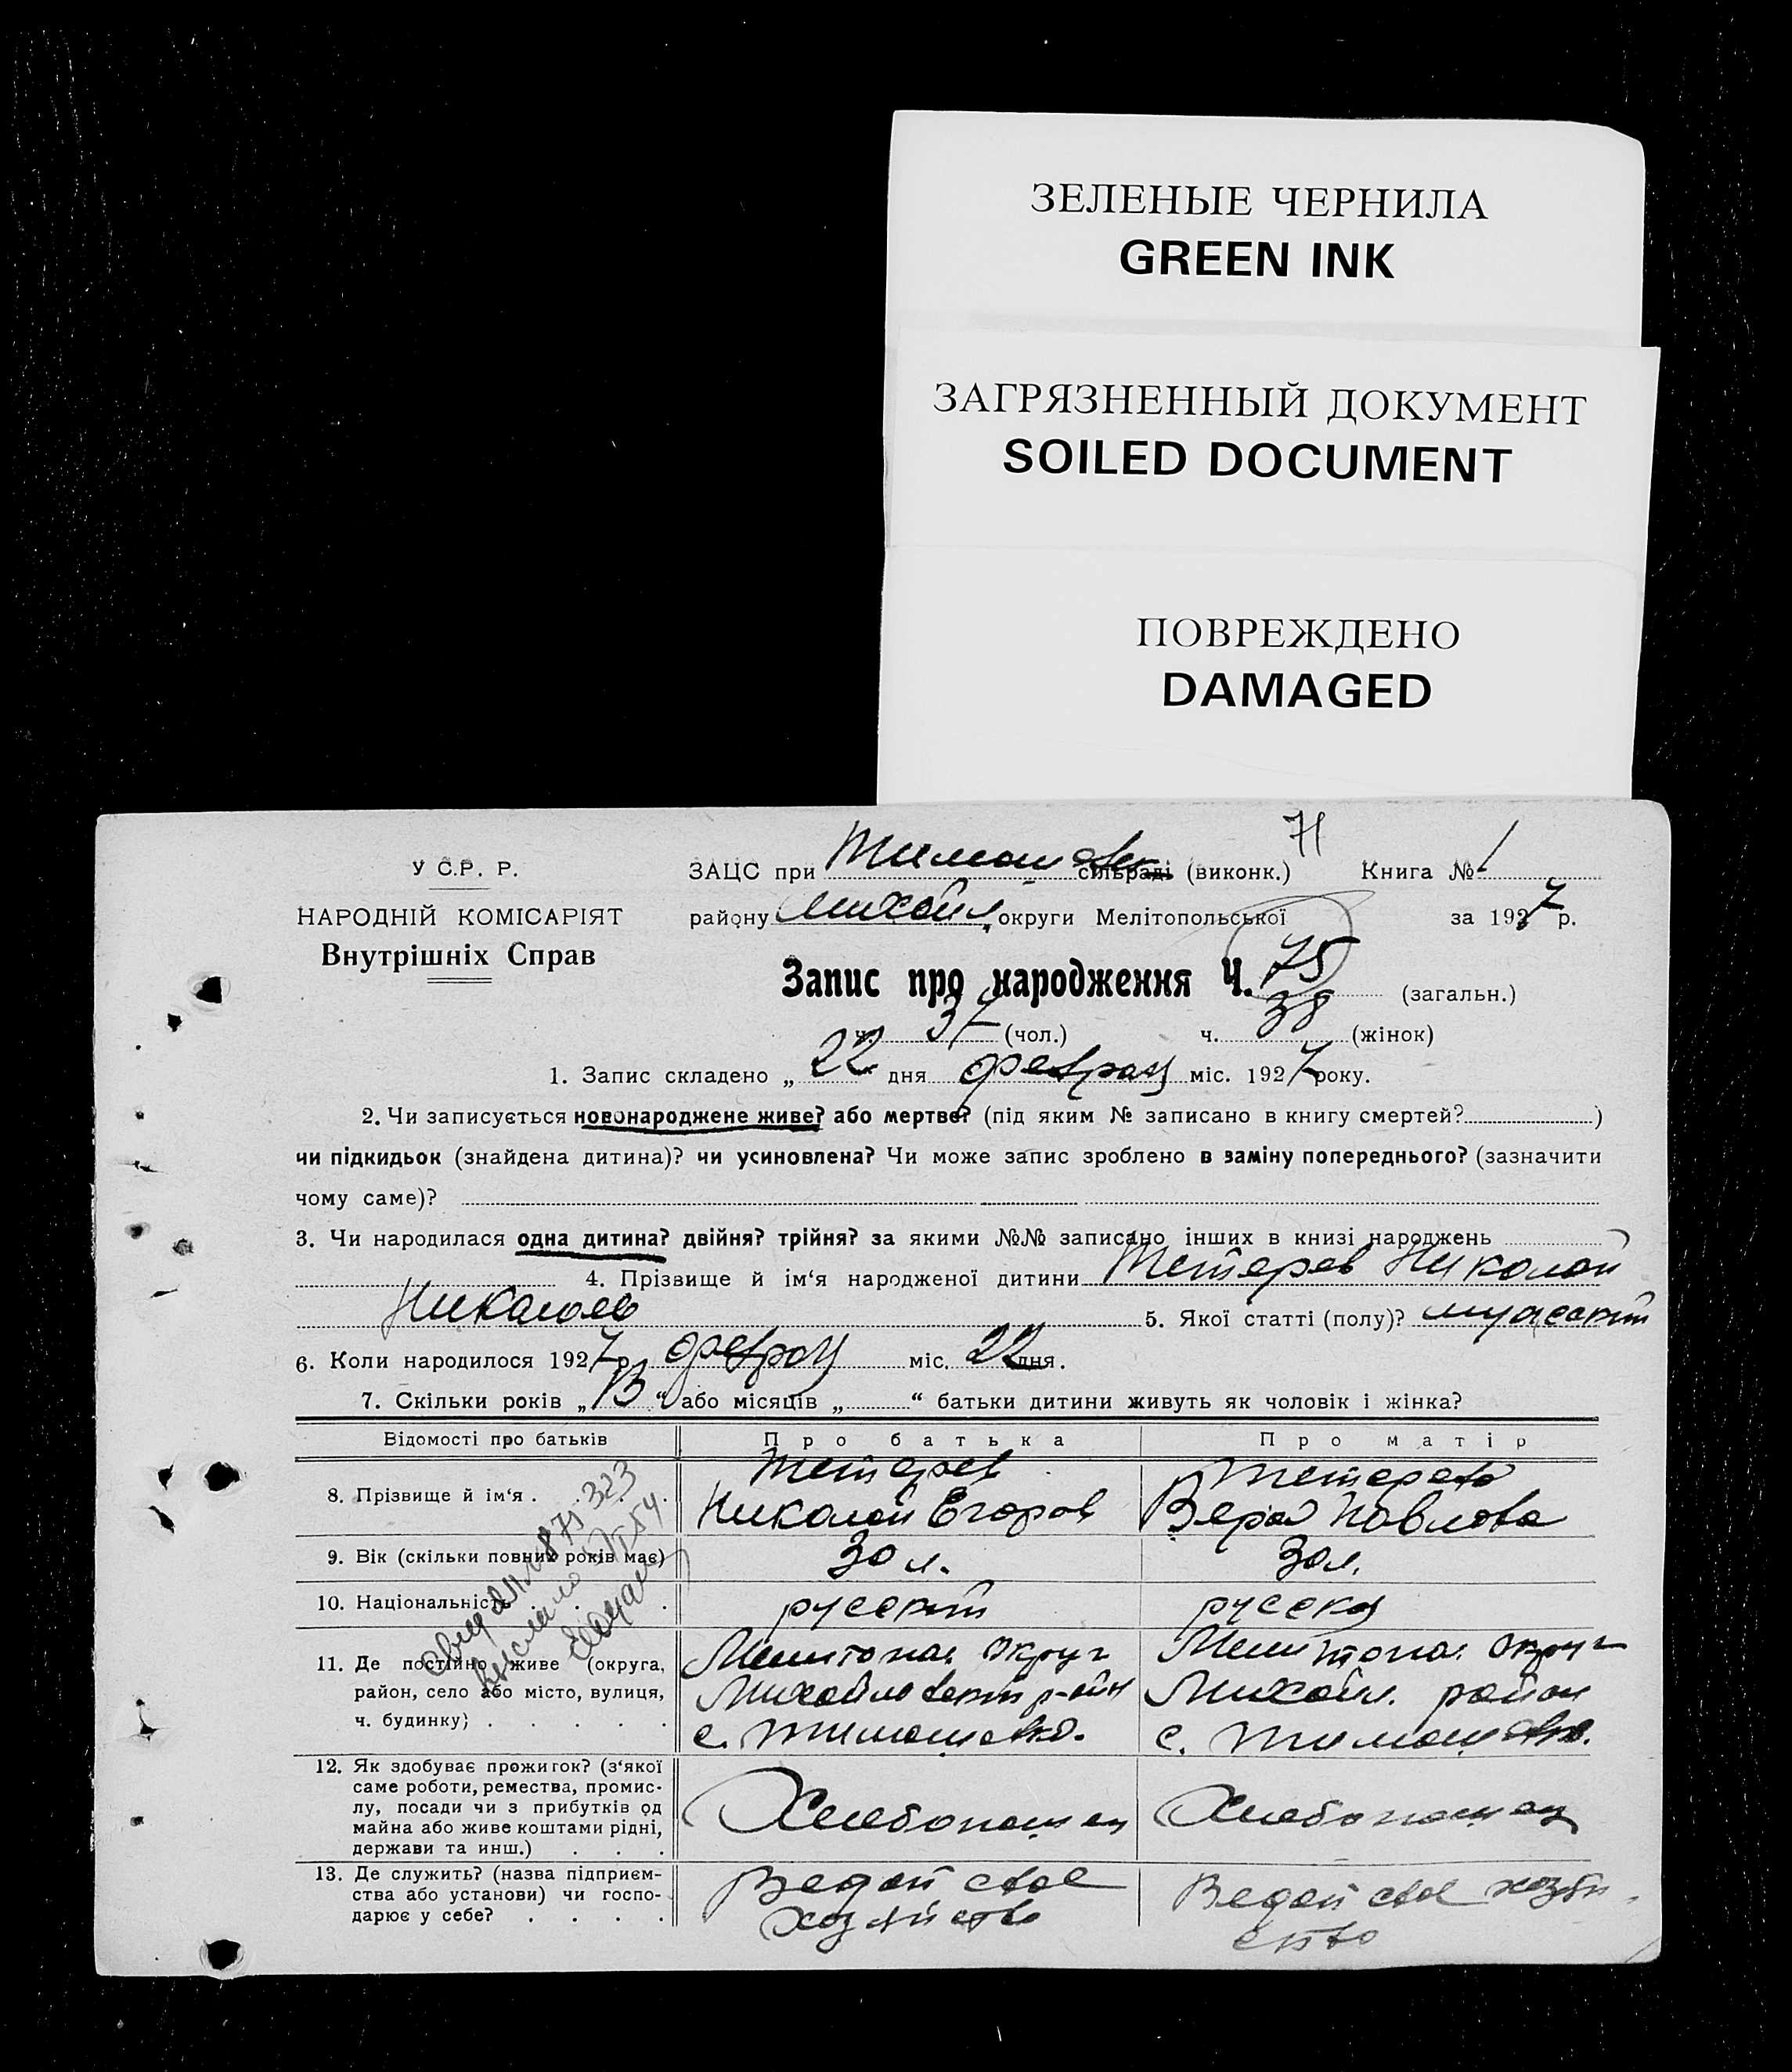 ЗЕЛЕНЫЕ ЧЕРНИЛА
GREEN INK
ЗАГРЯЗНЕННЫЙ ДОКУМЕНТ
SOILED DOCUMENT
ПОВРЕЖДЕНО
DAMAGED
71
У С.Р. Р.
НАРОДНІЙ КОМІСАРІЯТ
Внутрішніх Справ
ЗАЦС при Тимошевск сільраді (виконк.) Книга № 1
району Михайл. округи Мелітопольської за 1927 р.
Запис про народження Ч. 75 (загальн.)
ч. 37 (чол.) ч. 38 (жінок)
1. Запис складено „ 22 дня февраля міс. 1927 року.
2. Чи записується новонароджене живе? або мертве? (під яким № записано в книгу смертей? )
чи підкидьок (знайдена дитина)? чи усиновлена? Чи може запис зроблено в заміну попереднього? (зазначити
чому саме)?
3. Чи народилася одна дитина? двійня? трійня? за якими №№ записано інших в книзі народжень
4. Прізвище й ім‘я народженої дитини Тетерев Николай
Николаев 5. Якої статті (полу)? мужеский
6. Коли народилося 1927 р. февраля міс. 22 дня.
7. Скільки років „ 13 “ або місяців „ “ батьки дитини живуть як чоловік і жінка?
Відомості про батьків Про батька Про матір
8. Прізвище й ім‘я . Тетерев Николай Егоров Тетерева Вера Павлова
9. Вік (скільки повних років має) 30 л. 30 л.
10. Національність русский русская
11. Де постійно живе (округа,
район, село або місто, вулиця,
ч. будинку) . . . . .
Мелитопол округ
Михайловский р-айн
с. Тимошевка.
Мелитопол. округ
Михайл. район
с. Тимошевка.
12. Як здобуває прожиток? (з‘якої
саме роботи, ремества, промис-
лу, посади чи з прибутків од
майна або живе коштами рідні,
держави та инш.) . . .
Хлебопашец
Хлебопашец
13. Де служить? (назва підприєм-
ства або установи) чи госпо-
дарює у себе? . . . .
Ведет свое
хозяйство
Ведет свое хозяй-
ство